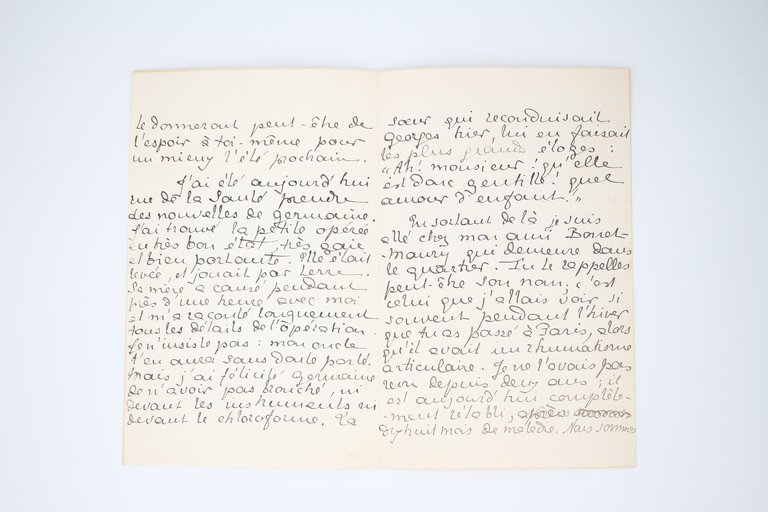 te donneront peut-être de
l'espoir à toi-même pour
un mieux l'été prochain.
J'ai été aujourd'hui
rue de la Santé prendre
des nouvelles de Germaine.
J'ai trouvé la petite opérée
en très bon état, très gaie
et bien portante. Elle était
levée, et jouait par terre.
Sa mère a causé pendant
près d'une heure avec moi
et m'a raconté longuement
tous les détails de l'opération.
Je n'insiste pas : mon oncle
t'en aura sans doute parlé.
Mais j'ai félicité Germaine
de n'avoir pas bronché, ni
devant les instruments ni
devant le chloroforme. La
sœur qui reconduisait
Georges hier, lui en faisait
les plus grands éloges :
"Ah! monsieur! qu'elle
est donc gentille! quel
amour d'enfant!"
En sortant de là je suis
allé chez mon ami Bonet-
Maury qui demeure dans
le quartier. Tu te rappelles
peut-être son nom; c'est
celui que j'allais voir si
souvent pendant l'hiver
que tu as passé à Paris, alors
qu'il avait un rhumatisme
articulaire. Je ne l'avais pas
revu depuis deux ans; il
est aujourd'hui complète-
-ment rétabli, après
dix huit mois de maladie. Nous sommes